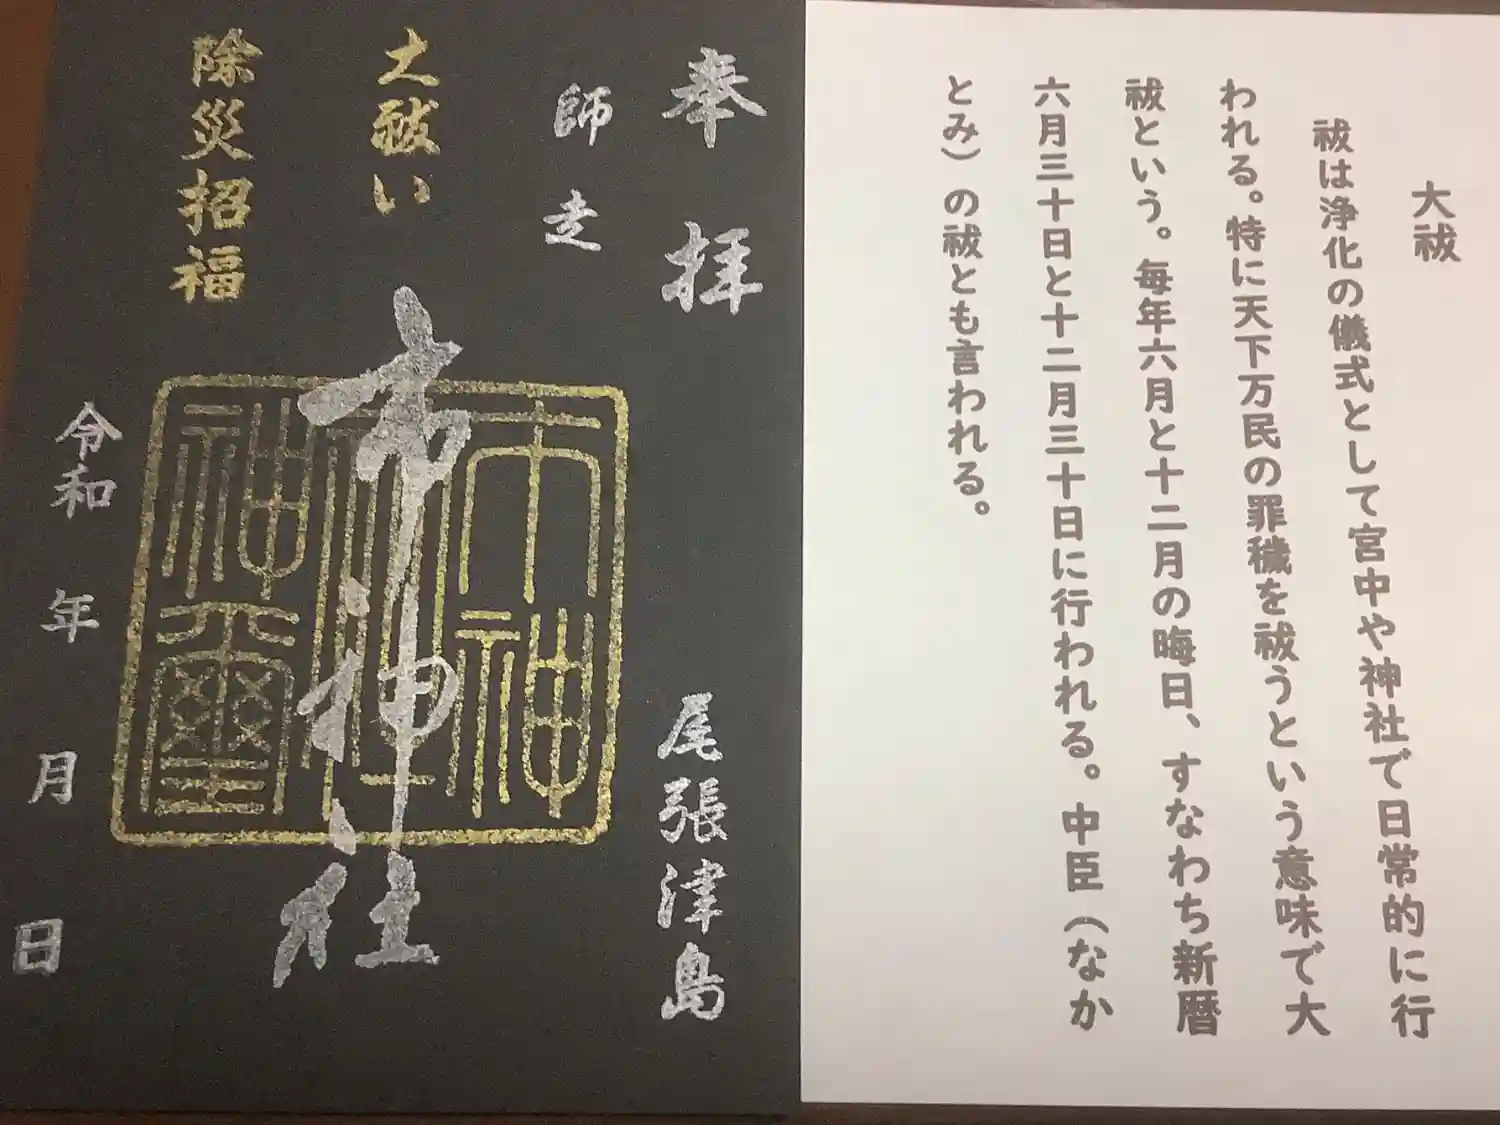 大祓
祓は浄化の儀式として宮中や神社で日常的に行
われる。特に天下万民の罪穢を祓うという意味で大
祓という。毎年六月と十二月の晦日、すなわち新暦
六月三十日と十二月三十日に行われる。中臣（なか
とみ）の祓とも言われる。
奉拝
師走
尾張津島
大祓い
市神社
市神社神璽
除災招福
令和 年 月 日